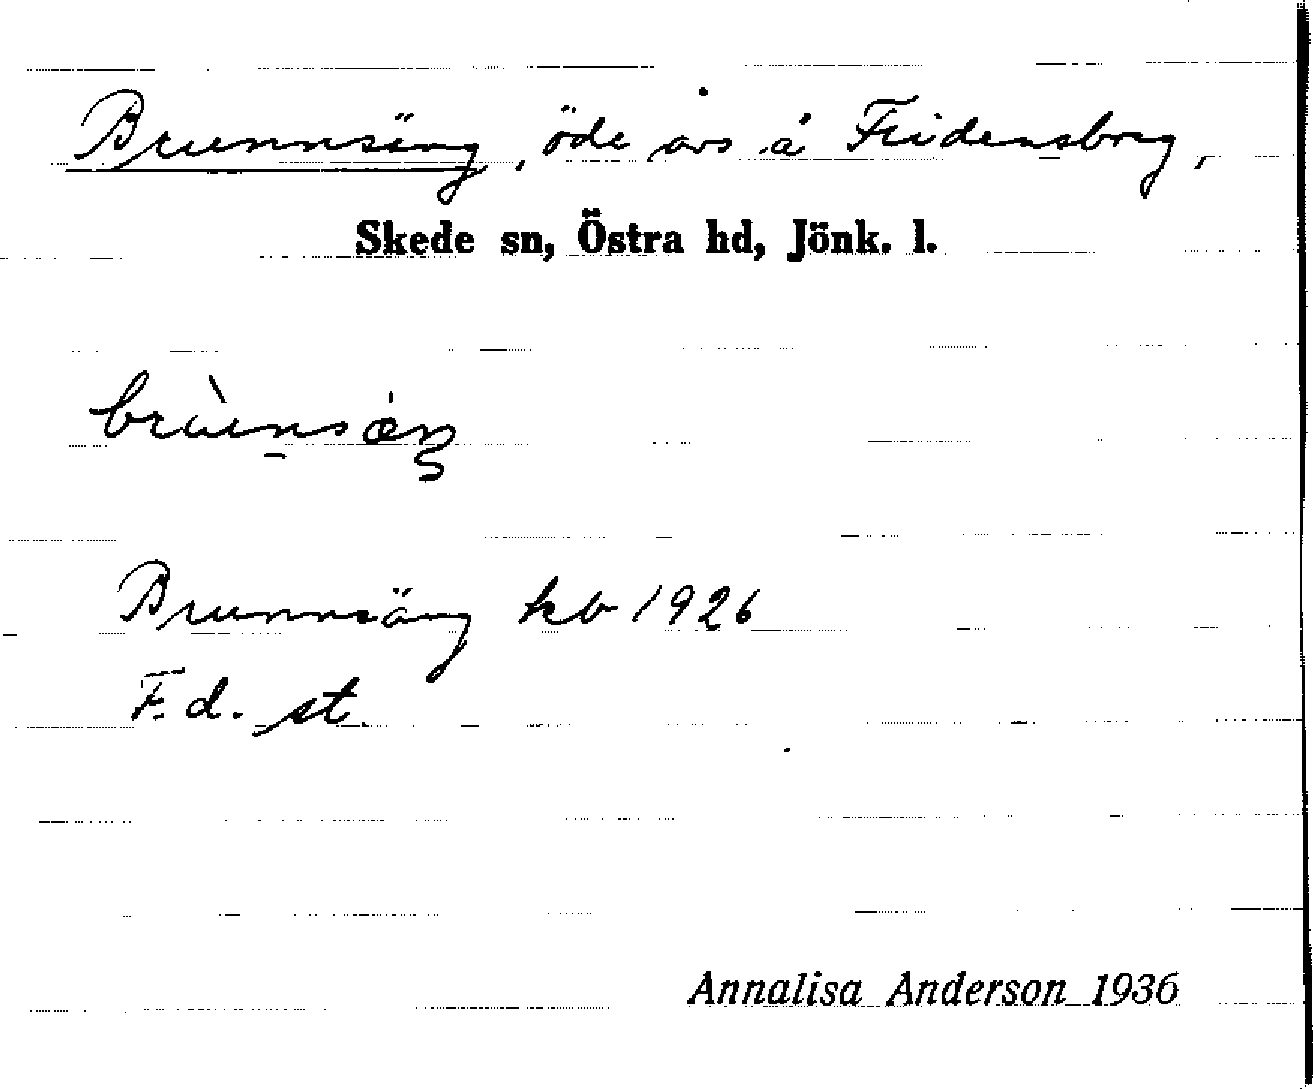 Brunnsäng, öde avs å Fridensborg,
Skede sn, Östra hd, Jönk. l.
Brunnsäng kb 1926
F.d. st.
Annalisa Anderson 1936